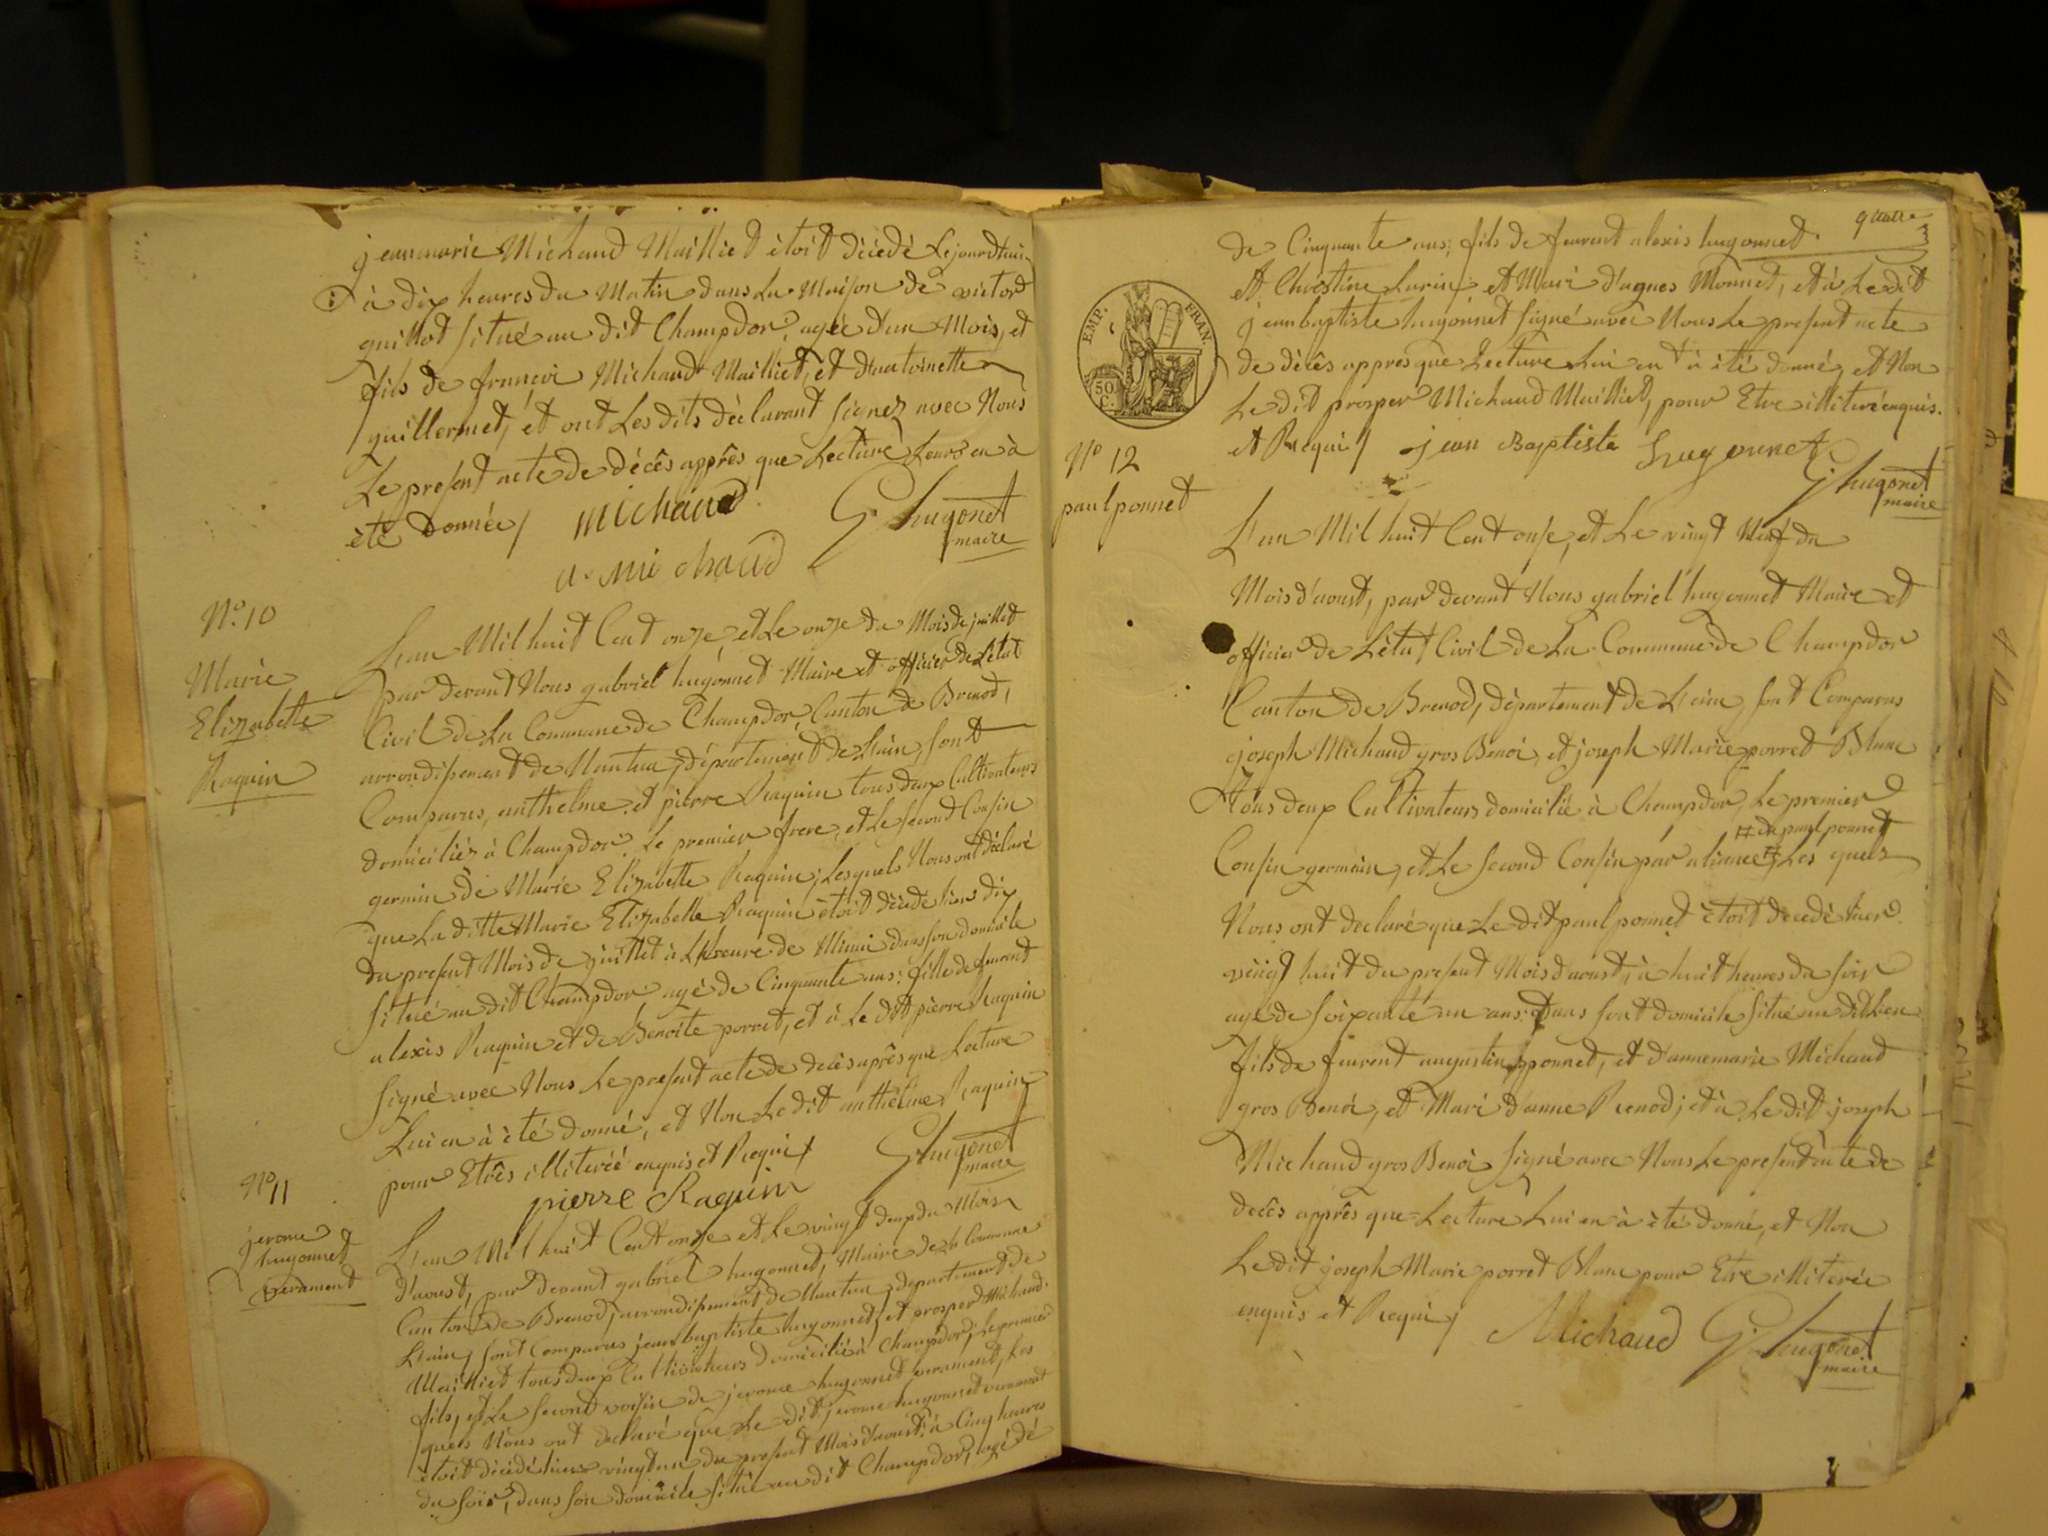 jeanmarie Michaud Mailliet étoit décédé Lejourdhui
à dix heures du Matin dans La Maison de victord
guillot situé au dit Champdor, agée d'un Mois, et
fils de françoi Michaud Mailliet, et d'antoinette
guillermet, et ont Les dits déclarant signez avec Nous
Le present acte de décês apprês que Lecture Leurs en à
été donnée / Michaud G. hugonet
maire
a. michaud
N.º 10
Marie
Elizabette
Raquin
L'an Mil huit Cent onze, et Le onze du Mois de juillet
par devant Nous gabriel hugonnet Maire et officier de L'état
Civil de La Commune de Champdor, Canton de Brenod,
arrondissement de Nantua, département de L'ain, sont
Comparus, anthelme et pierre Raquin tous deux Cultivateurs
domiciliés à Champdor, Le premier frere, et Le second Cousin
germin de Marie Elizabette Raquin; Lesquels Nous ont déclaré
que La ditte Marie Elizabette Raquin étoit décédé hier dix
du present Mois de juillet à L'heure de Minui dans son domicile
situé au dit Champdor agé de Cinquante ans: fille de feurent
alexis Raquin et de Benoite porret, et à Le dit pierre Raquin
signé avec Nous Le present acte de decês après que Lecture
Lui en à été donné, et Non Le dit anthelme Raquin
pour Etrês illiterée enquis et Requi /
pierre Raquin G. hugonet
maire
Nº 11
jerome
hugonnet
verament
L'an Mil huit Cent onze et Le vingt deux du Mois
d'aoust, par devant gabriel hugonnet, Maire de La Commune
Canton de Brenod, arrondissement de Nantua, departement de
L'ain, sont Comparus jean baptiste hugonnet, et prosper Michaud
Mailliet tous deux Cultivateurs domicilié à Champdor, Le premier
fils, et Le second voisin de jerome hugonnet verament, Les
quels Nous ont declaré que Le dit jerome hugonnet verament
étoit décédé hier vingt un du present Mois d'aoust, à Cinq heures
du soir, dans son domicile situé au dit Champdor, agé dé
quatre
de Cinquante ans; fils de feurent alexis hugonnet.
et Christine Larin, et Mari d'agnes Monnet, et à Le dit
jean baptiste hugonnet signé avec Nous Le present acte
de décês appres que Lecture Lui en à été donné, et Non
Le dit prosper Michaud Mailliet, pour Etre illiteré enquis.
et Requi / jean Baptiste hugonnet
G. hugonet
maire
EMP. FRAN.
50
C.
Nº 12
paul ponnet
L'an Mil huit Cent onse, et Le vingt Neuf du
Mois d'aoust, par devant Nous gabriel hugonnet Maire et
officier de L'état Civil de La Commune de Champdor
Canton de Brenod, département de L'ain, sont Comparus
joseph Michaud gros Benoi, et joseph Marie porret Blanc
Tous deux Cultivateurs domicilié à Champdor, Le premier
# du paul ponnet
Cousin germain, et Le second Cousin par aliance # Les quels
Nous ont declaré que Le dit paul ponnet étoit décédé hier
vingt huit du present Mois d'aoust, à huit heures du soir
agé de soixante un ans: dans sont domicile situé au dit Lieu
fils de feurent augustin ponnet, et d'annemarie Michaud
gros Benoi, et Mari d'anne Brenod; et à Le dit joseph
Michaud gros Benoi signé avec Nous Le present acte de
decês apprês que Lecture Lui en à été donné, et Non
Le dit joseph Marie porret Blanc pour Etre illiterée
enquis et Requi / Michaud G. hugonet
maire